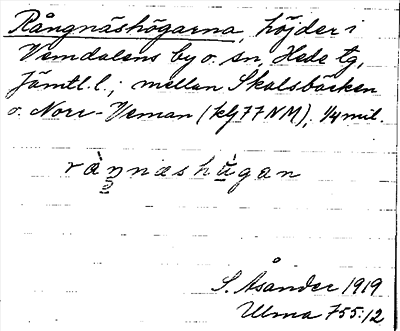 Rångnäshögarna, höjder i
Vemdalens by o. sn, Hede tg,
Jämtl. l.; mellan Skalsbäcken
o. Norr-Veman (kbl 77 NM), 1/4 mil.
ràŋnæshǜgan
S. Åsander 1919
Ulma 755:12